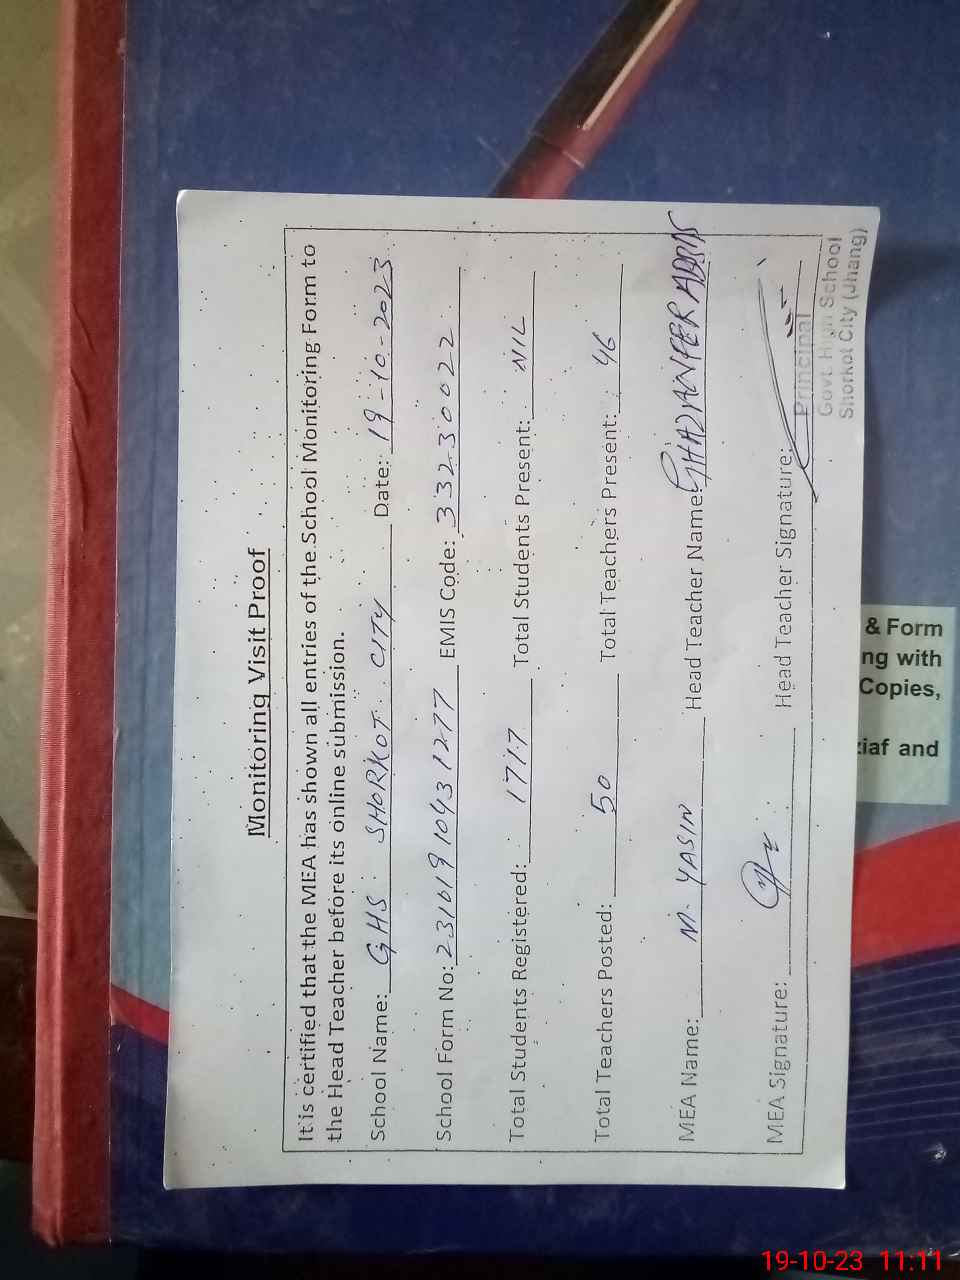 Monitoring Visit Proof
It is certified that the MEA has shown all entries of the School Monitoring Form to
the Head Teacher before its online submission.
School Name: GHS SHORKOT CITY Date: 19-10-2023
School Form No: 231019104312 77 EMIS Code: 33230022
Total Students Registered: 1717 Total Students Present: NIL
Total Teachers Posted: 50 Total Teachers Present: 46
MEA Name: M. YASIN Head Teacher Name: GHAZANFER ABBAS
MEA Signature: Head Teacher Signature:
Principal
Govt. High School
Shorkot City (Jhang)
& Form
ng with
Copies,
ziaf and
19-10-23 11:11